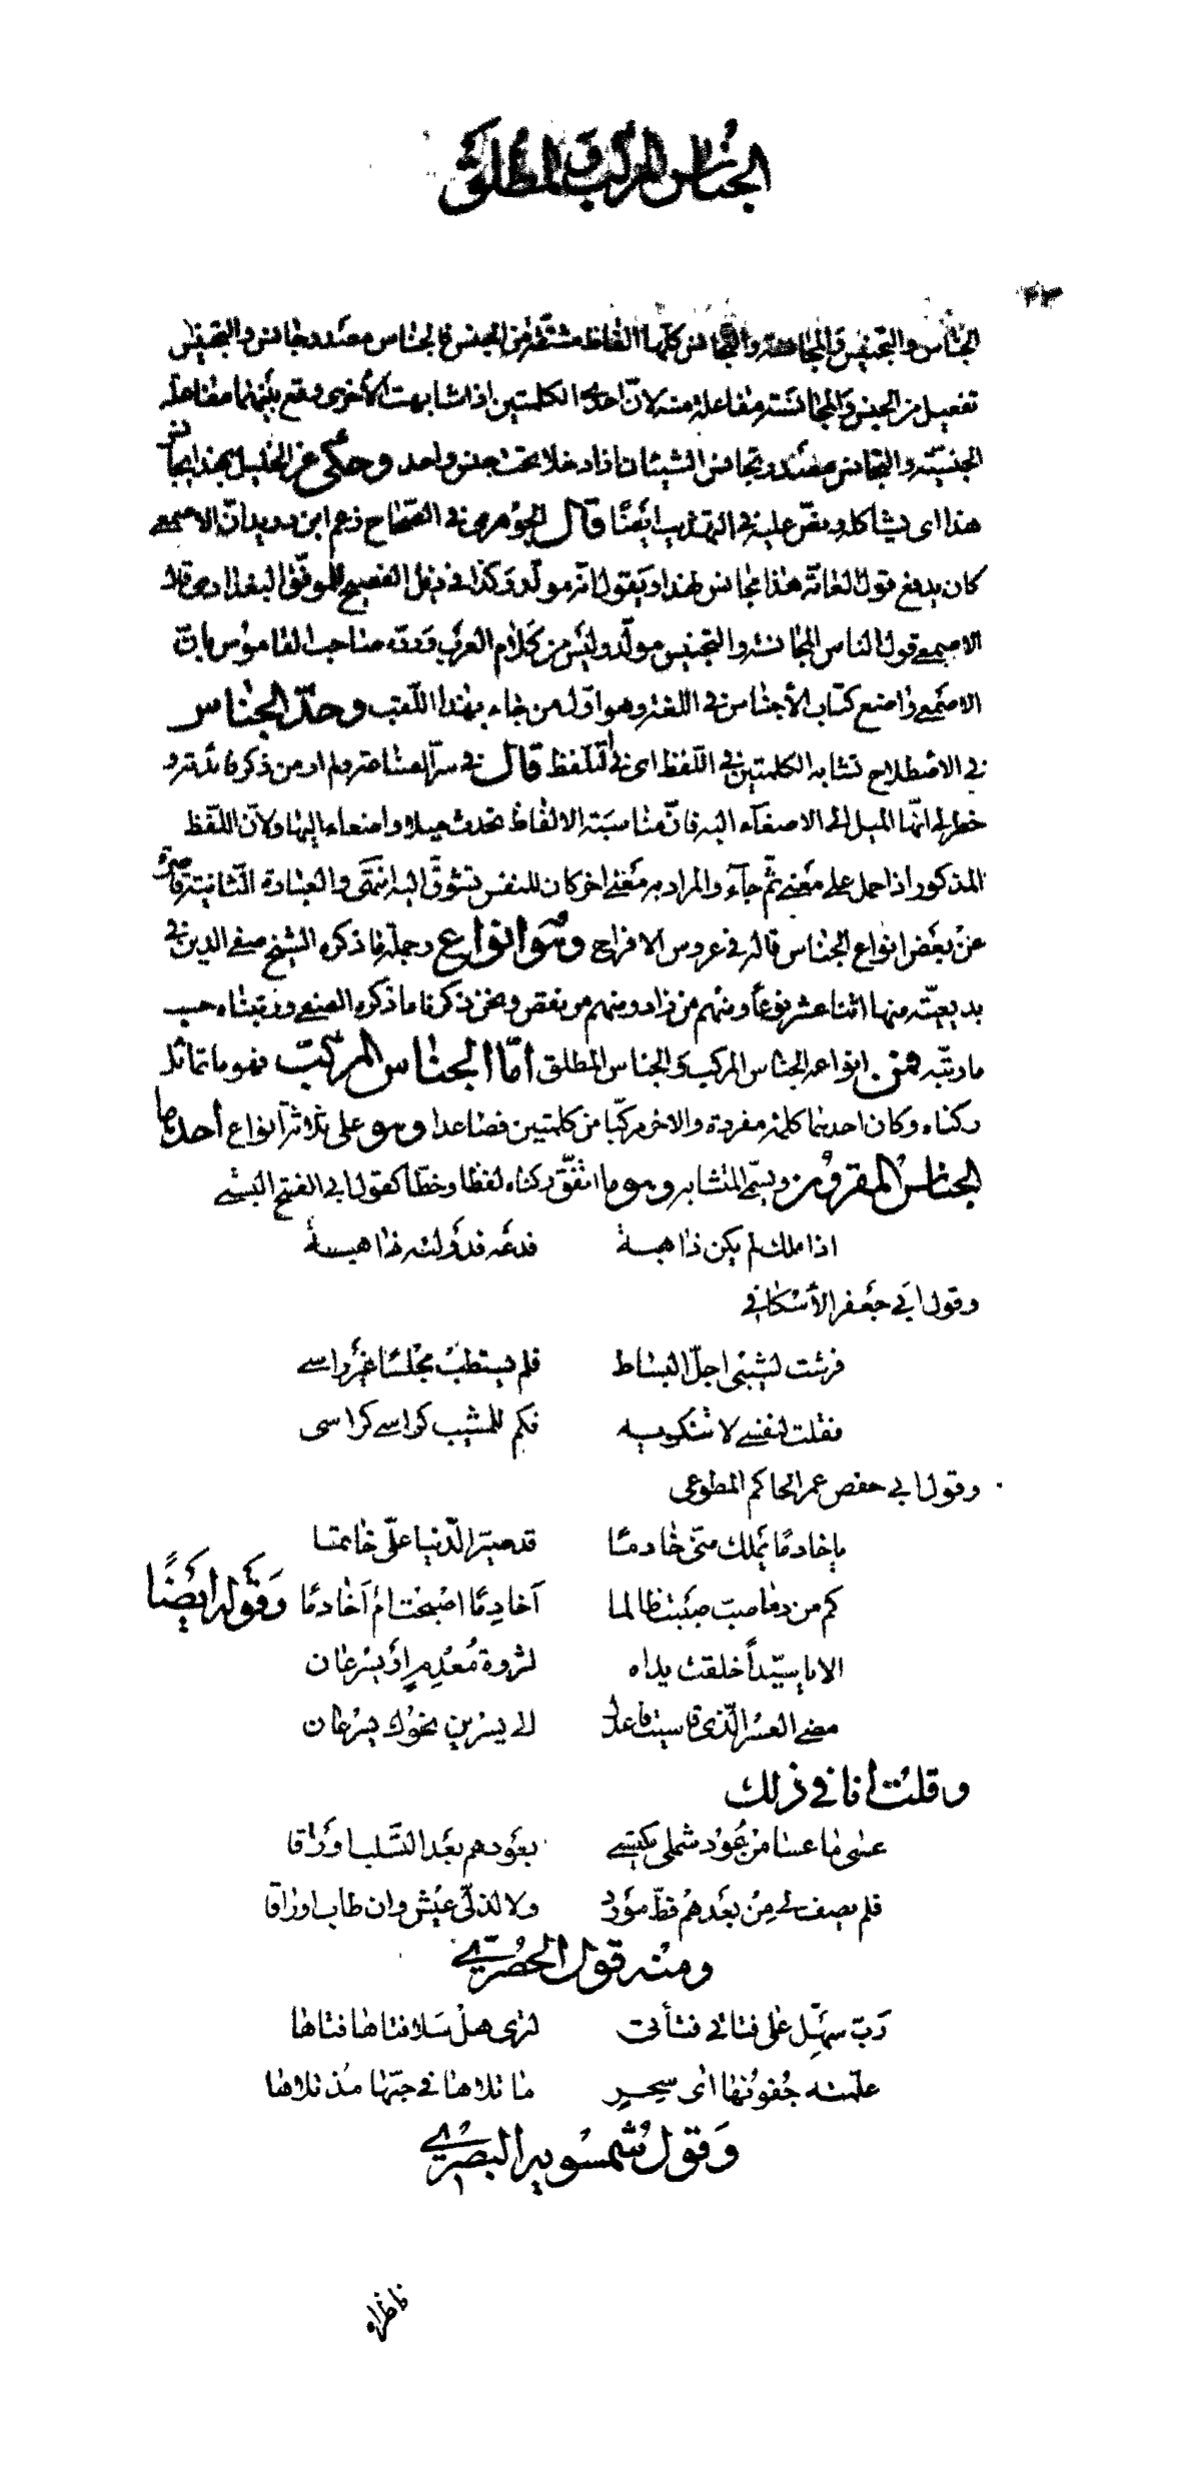 الجناس المركب والمطلق
٢٣
الجناس والتجنيس والمجانسة والتجانس كلها الفاظ مشتقة من الجنس فالجناس مصدر جانس والتجنيس
تفعيل من الجنس والمجانسة مفاعلة منه لانّ احدى الكلمتين اذا شابهت الأخرى وقع بينهما مفاعلة
الجنسيّة والتجانس مصدر تجانس الشيئان اذا دخلا تحت جنس واحد وحكى عن الخليل هذا يجانس
هذا اى يشاكله ونصّ عليه في التهذيب ايضًا قال الجوهرى في الصّحاح زعم ابن دريد انّ الاصمعى
كان يدفع قول العامّة هذا مجانس لهذا ويقول انّه مولّد وكذا في ذيل الفصيح للموفّق البغدادى قال
الاصمعى قول الناس المجانسة والتجنيس مولّد وليس من كلام العرب وردّه صاحب القاموس بانّ
الاصمعى واضع كتاب الأجناس في اللغة وهو اوّل من جاء بهذا اللّقب وحدّ الجناس
في الاصطلاح تشابه الكلمتين في اللّفظ اى في التلفظ قال في سرّ الصناعة ولم ار من ذكر فائدته و
خطر لى انّها الميل الى الاصغآء اليه فانّ مناسبة الالفاظ تحدث ميلا واصغاء اليها ولانّ اللّفظ
المذكور اذا حمل على معنى ثمّ جآء والمراد به معنى اخر كان للنفس تشوّق اليه انتهى والعبادة الثانية قاصرة
عن بعض انواع الجناس قاله في عروس الافراح وهو انواع وجملة ما ذكره الشيخ صفى الدين في
بديعيّته منها اثنا عشر نوعاً ومنهم من زاد ومنهم من نقص ونحن ذكرنا ما ذكره الصفى ورتبناه حسب
ما رتبّه فمن انواعه الجناس المركب والجناس المطلق امّا الجناس المركّب فهو ما تماثل
ركناه وكان احدهما كلمة مفردة والاخر مركّبا من كلمتين فصاعدا وهو على ثلاثة انواع أحدها
الجناس المقرون ويسمّى المتشابه وهو ما اتّفق ركناه لفظا وخطّا كقول ابى الفتح البستى
اذا ملك لم يكن ذا هبة فدعه فدولته ذاهبة
وقول ابى جعفر الأسكافى
فرشت لشيبى اجلّ البساط فلم يستطب مجلسًا غير راسى
فقلت لنفسى لا تنكريه فكم للمشيب كراسى كراسى
وقول ابى حفص عمر الحاكم المطوعى
يا خادمًا يملك منّى خادمًا قد صيّر الدّنيا علىّ خاتما
كم من دما صبّ صببت ظالما آخادِمًا اصبحت ام آخا دمًا وقوله ايضًا
الا يا سيّداً خلقت يداه لثروة مُعْدِمٍ اَوْ يسْرِ عان
مضى العسر الّذى قاسيت فاعلم الى يسرين نحوك يسرعان
وقلت انا في ذلك
عسى ما عسا من عُود شملى يكتسى بعودهم بعد السّلب اوراقا
فلم يصف لى مِن بعدهم قطّ مورد ولا لذّ لى عيش وان طاب او راقا
ومنه قول الحصرىّ
ربّ سهِّل على فتاتى فتأتى لترى هل سلا فتاها فتاها
علّمته جُفونها اىّ سِحرٍ ما تلاها في حبّها مُذ تلاها
وقول شمسويه البصرىّ
ناظراه